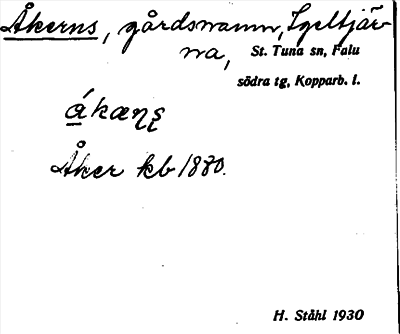 Åkerns, gårdsnamn, Igeltjär-
na, St. Tuna sn, Falu
södra tg, Kopparb. l.
ákæṇṣ
Åker kb 1880.
H. Ståhl 1930